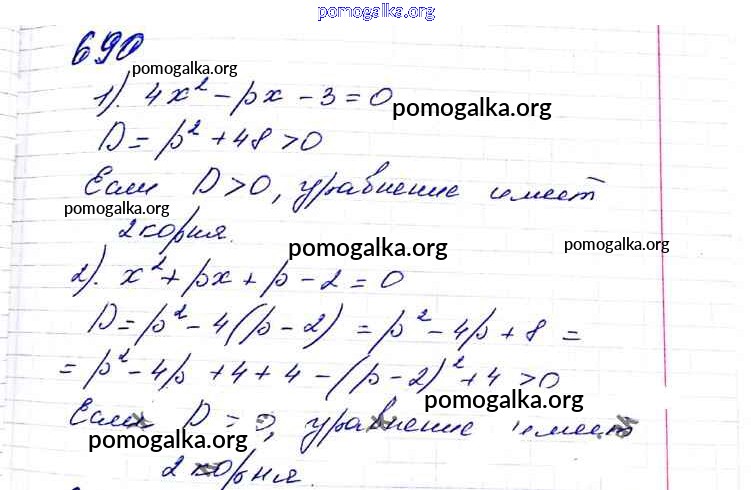 pomogalka.org
690
pomogalka.org
1). 4x² - px - 3 = 0
pomogalka.org
D = p² + 48 > 0
Если D > 0, уравнение имеет
pomogalka.org
2 корня.
pomogalka.org
pomogalka.org
2). x² + px + p - 2 = 0
D = p² - 4(p - 2) = p² - 4p + 8 =
= p² - 4p + 4 + 4 - (p - 2)² + 4 > 0
pomogalka.org
Если D = 0, уравнение имеет
pomogalka.org
2 корня.